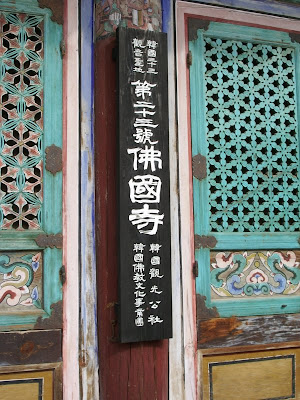 韓國三十三
觀音聖地
第二十三號
佛國寺
韓國觀光公社
韓國佛教文化事業團